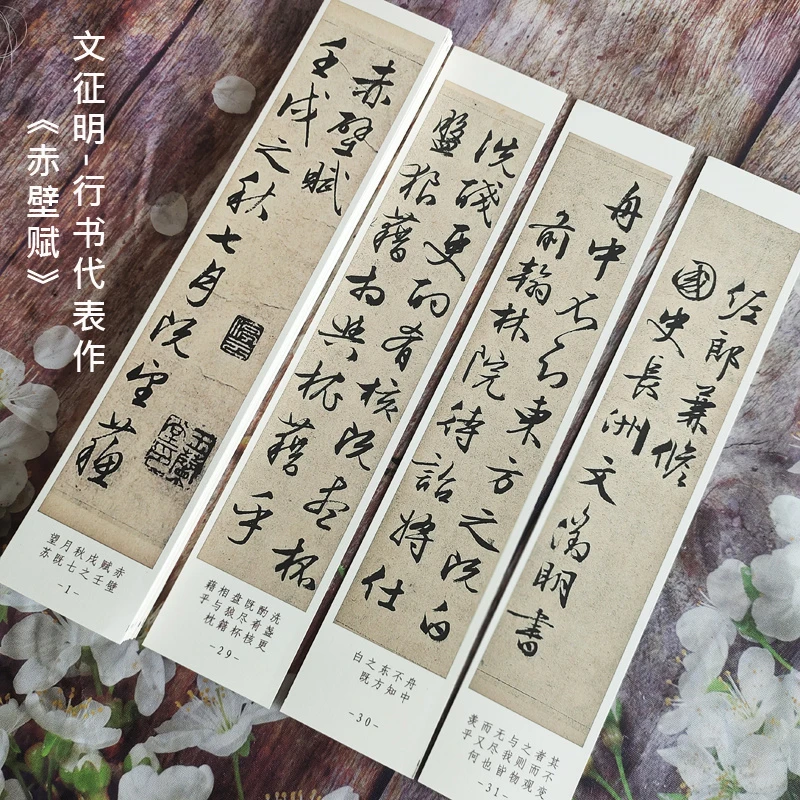 文征明-行书代表作
《赤壁赋》
赤壁賦
壬戌之秋七月既望蘇
赤壁
赋壬
戌之
秋七
月既
望苏
-1-
洗醆更酌肴核既盡杯
盤狼藉相與枕藉乎
洗盏更
酌肴核
既尽杯
盘狼籍
相与枕
藉乎
-29-
舟中不知東方之既白
前翰林院待詔將仕
舟中
不知
东方
之既
白
-30-
佐郎兼修
國史長洲文徵明書
其不变
者而观
之则物
与我皆
无尽也
而又何
羡乎
-31-